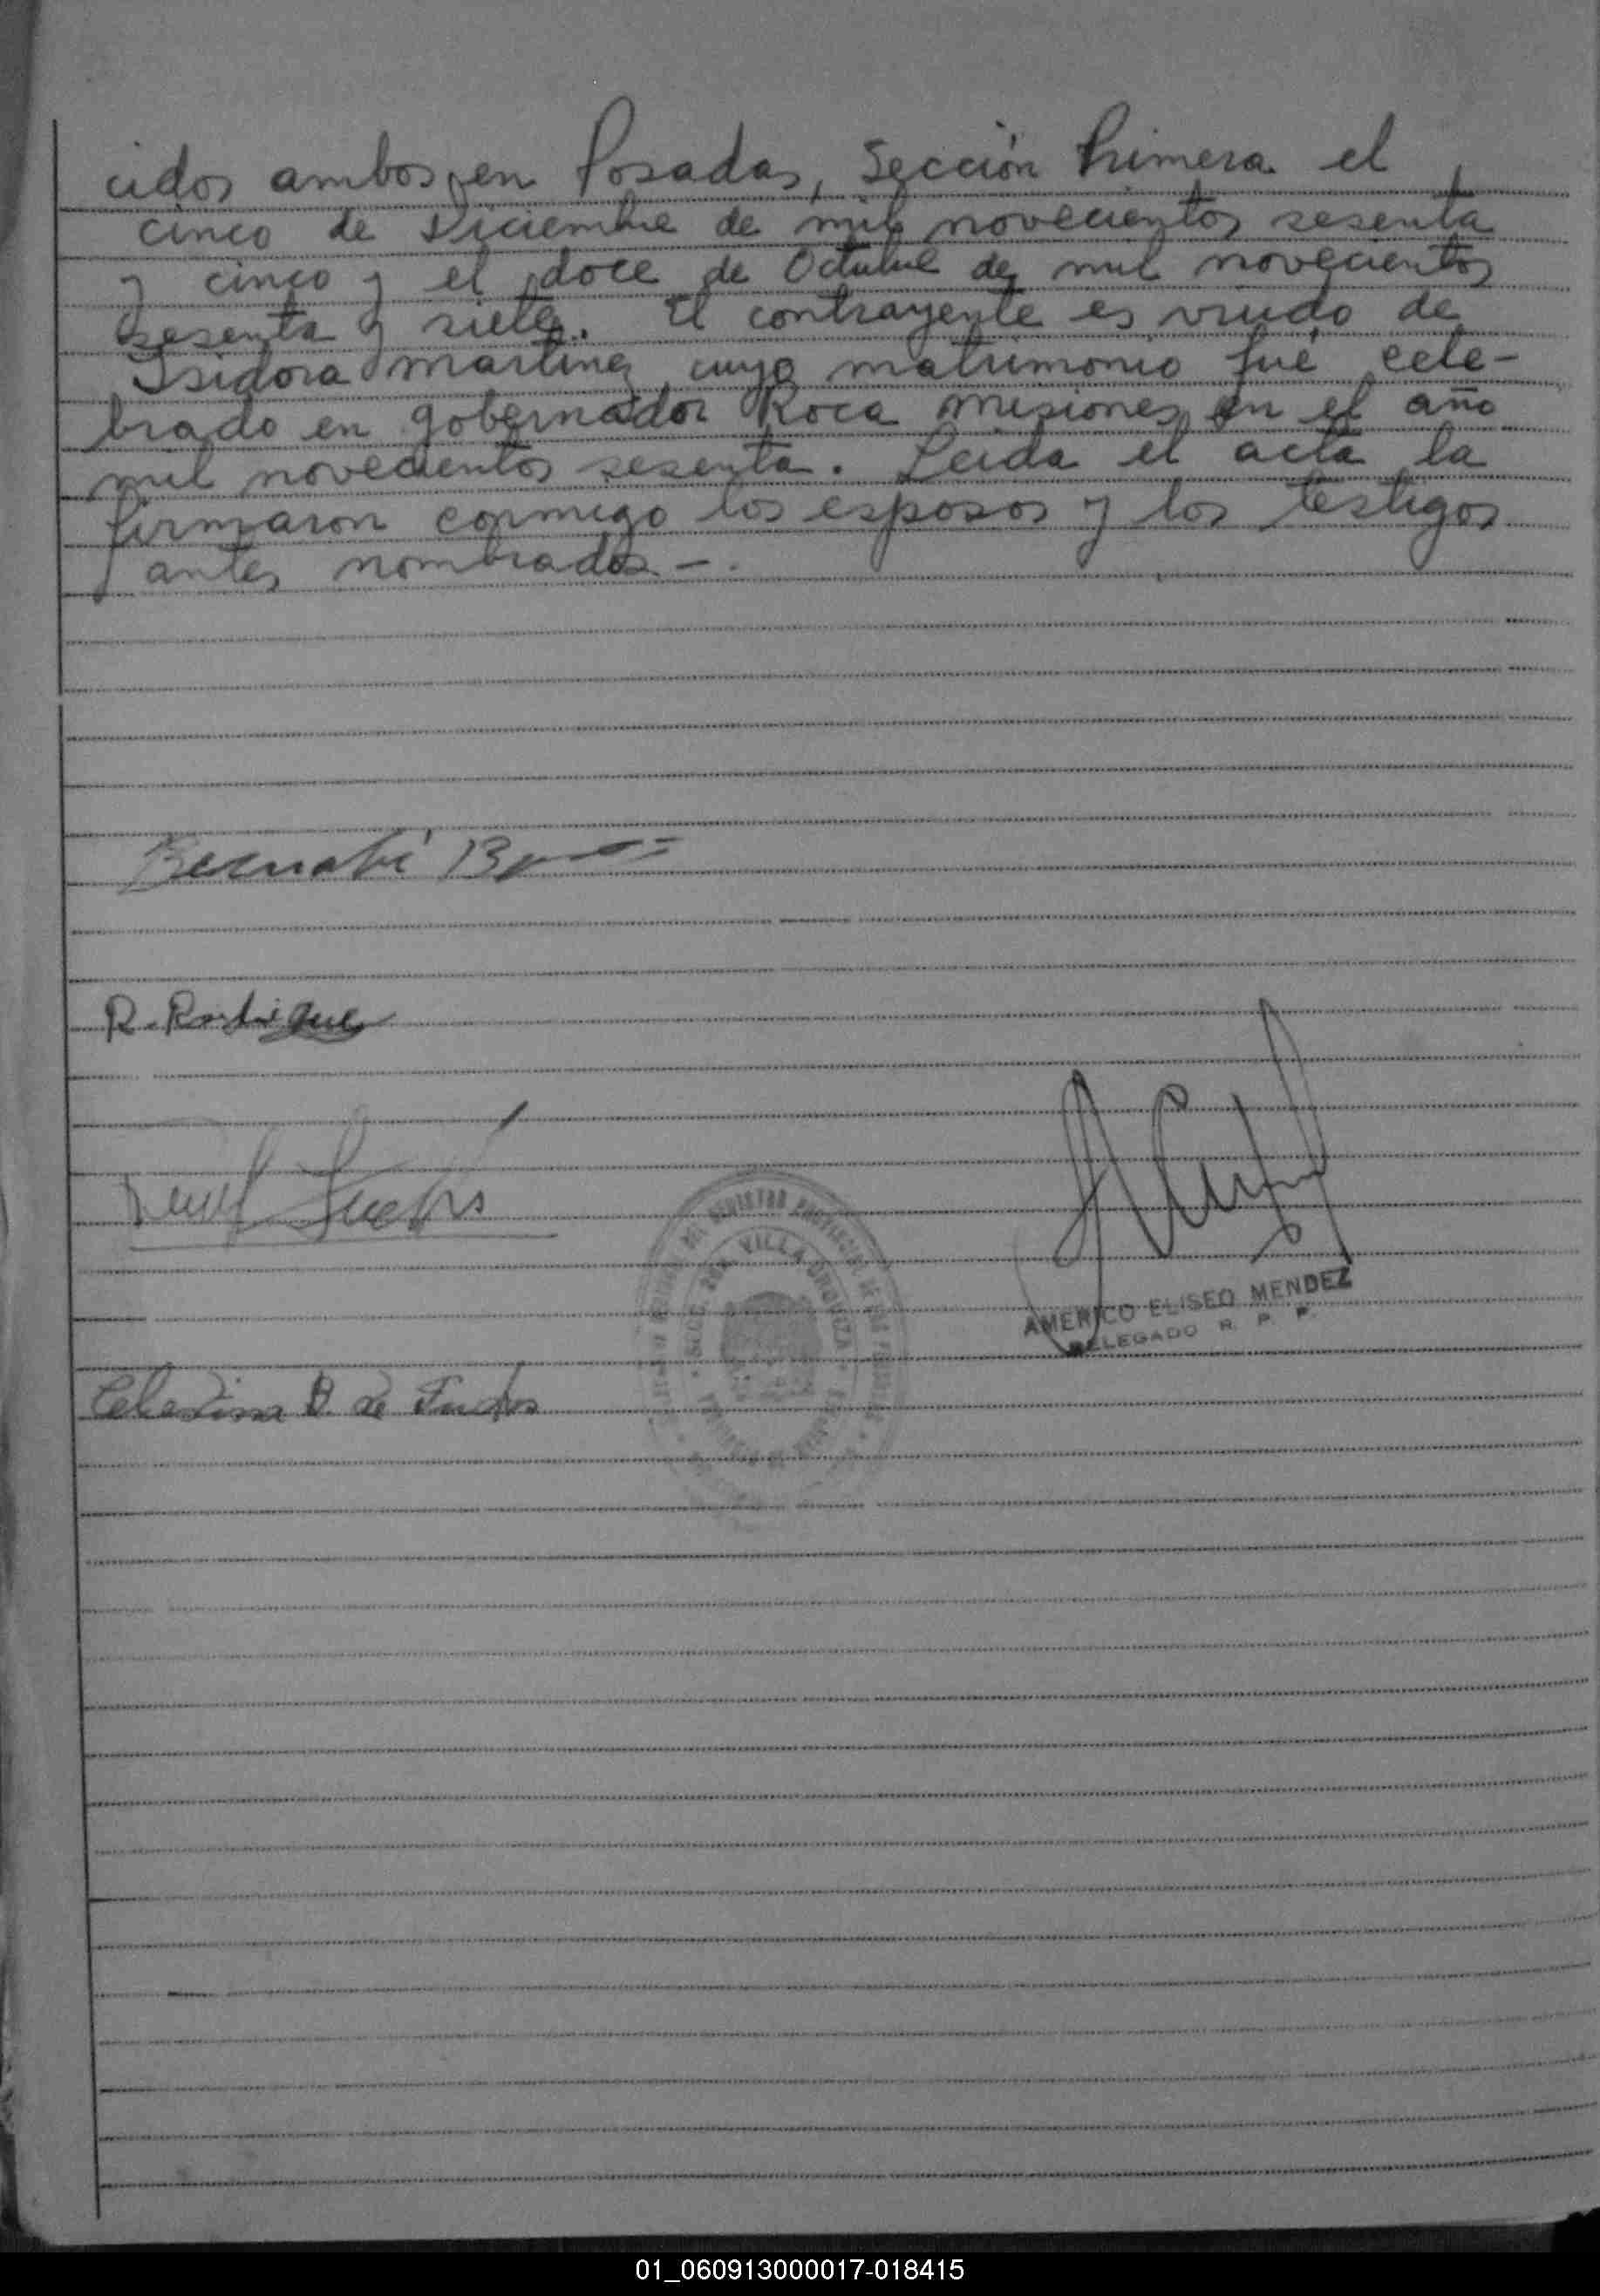 cidos ambos, en Posadas, Sección Primera el
cinco de Diciembre de mil novecientos sesenta
y cinco y el doce de Octubre de mil novecientos
sesenta y siete. El contrayente es viudo de
Isidora Martinez cuyo matrimonio fué cele-
brado en gobernador Roca Misiones, en el año
mil novecientos sesenta. Leida el acta la
firmaron conmigo los esposos y los testigos
antes nombrados -.
Bernabé
R. Rodriguez
VILLA URQUIZA
AMERICO ELISEO MENDEZ
DELEGADO R. P. P.
Celestina B. de
01_060913000017-018415